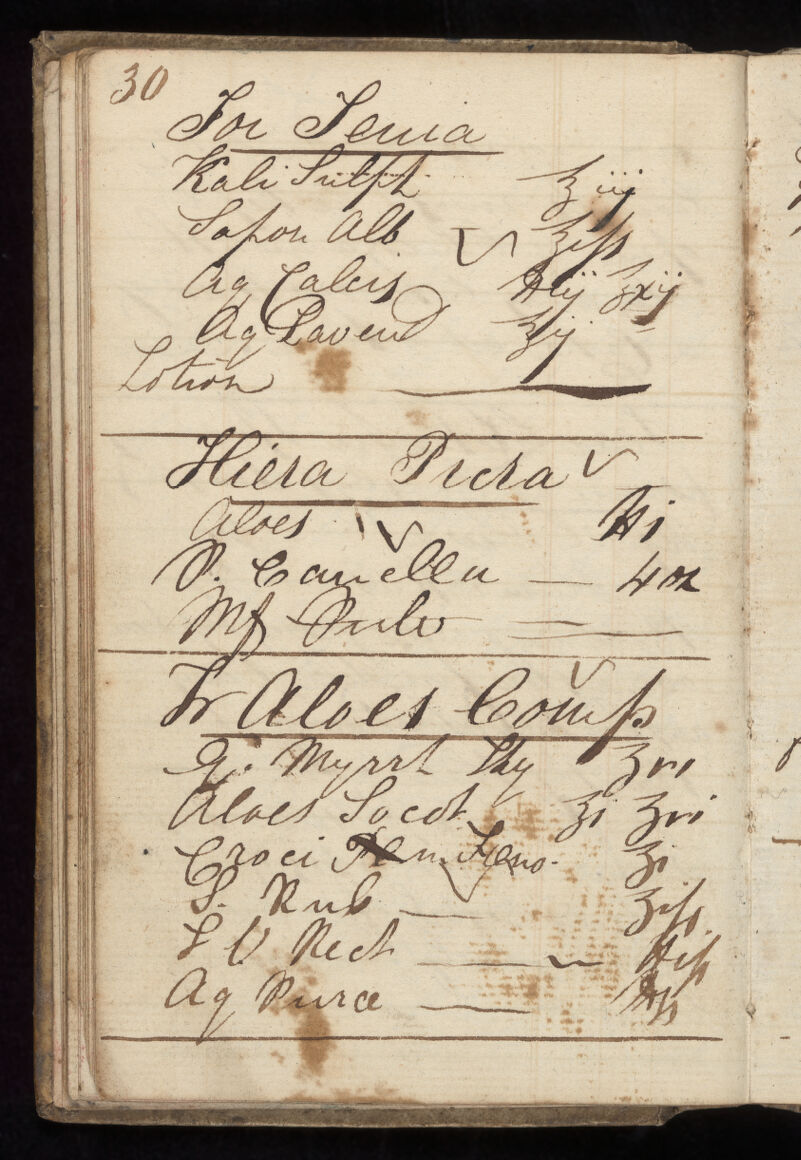 30
For Tenia
Kali Sulph ʒ iij
Sapon Alb ʒiſs
Aq Calcis ℔ij ℥xij
Aq Lavend ℥ij
Lotion
Hiera Picra
Aloes ℔i
P. Canella — 4 oz
Mf Pulv
Tr Aloes Comp
G. Myrrh ʒvi
Aloes Socot ℥i ʒvi
Croci Feno. ʒi
S. Rub — ʒiſs
S V Rect — ℔iſs
Aq Puræ — ℔ſs